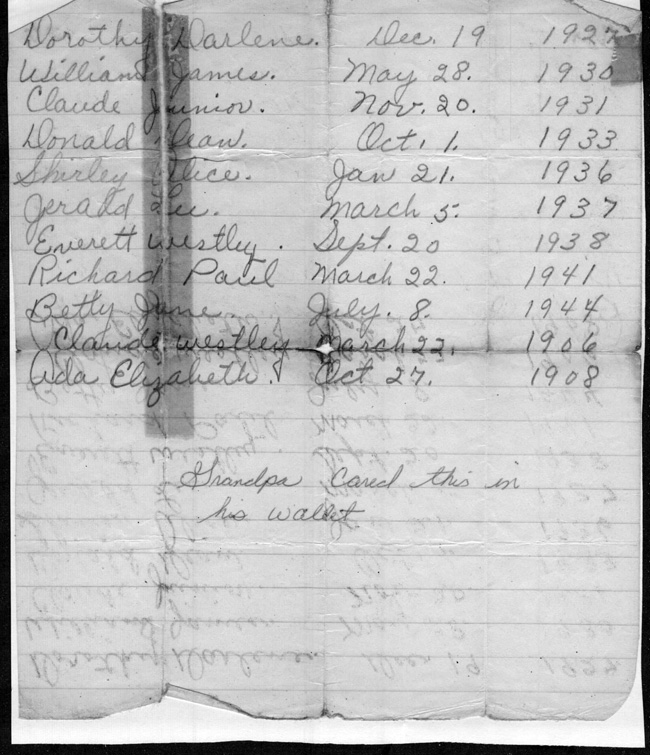 Dorothy Darlene. Dec. 19 1927
William James. May 28. 1930
Claude Junior. Nov. 20. 1931
Donald Dean. Oct. 1. 1933
Shirley Alice. Jan 21. 1936
Jerald Lee. March 5. 1937
Everett Westley. Sept. 20 1938
Richard Paul March 22. 1941
Betty June. July. 8. 1944
Claude Westley March 22. 1906
Ada Elizabeth. Oct 27. 1908
Grandpa Cared this in
his wallet